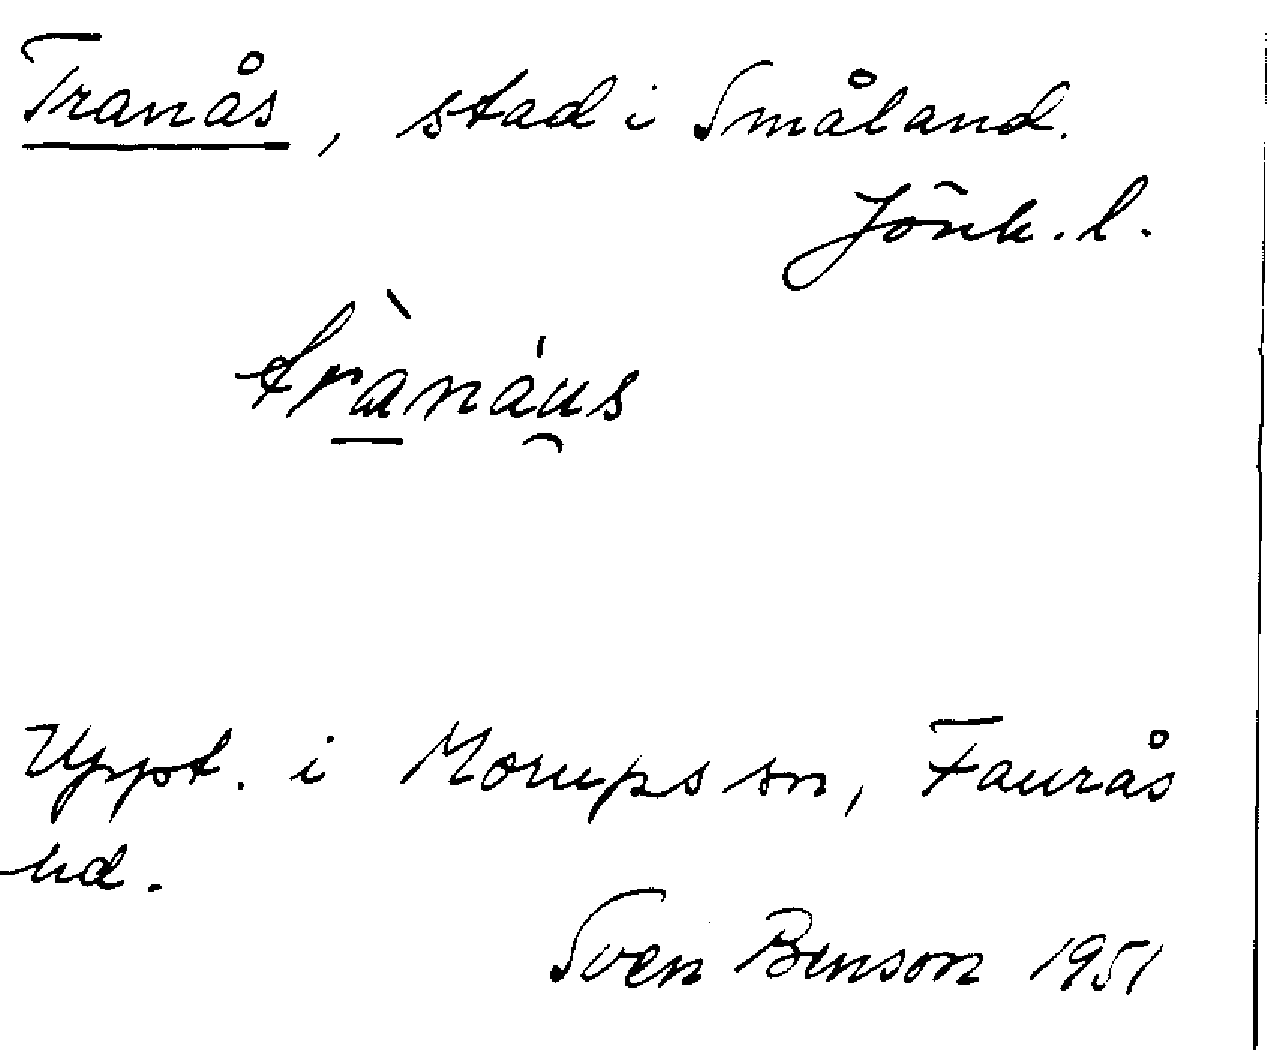 Tranås, stad i Småland.
Jönk. l.
trà̠náu̯s
Uppt. i Morups sn, Faurås
hd.
Sven Benson 1951